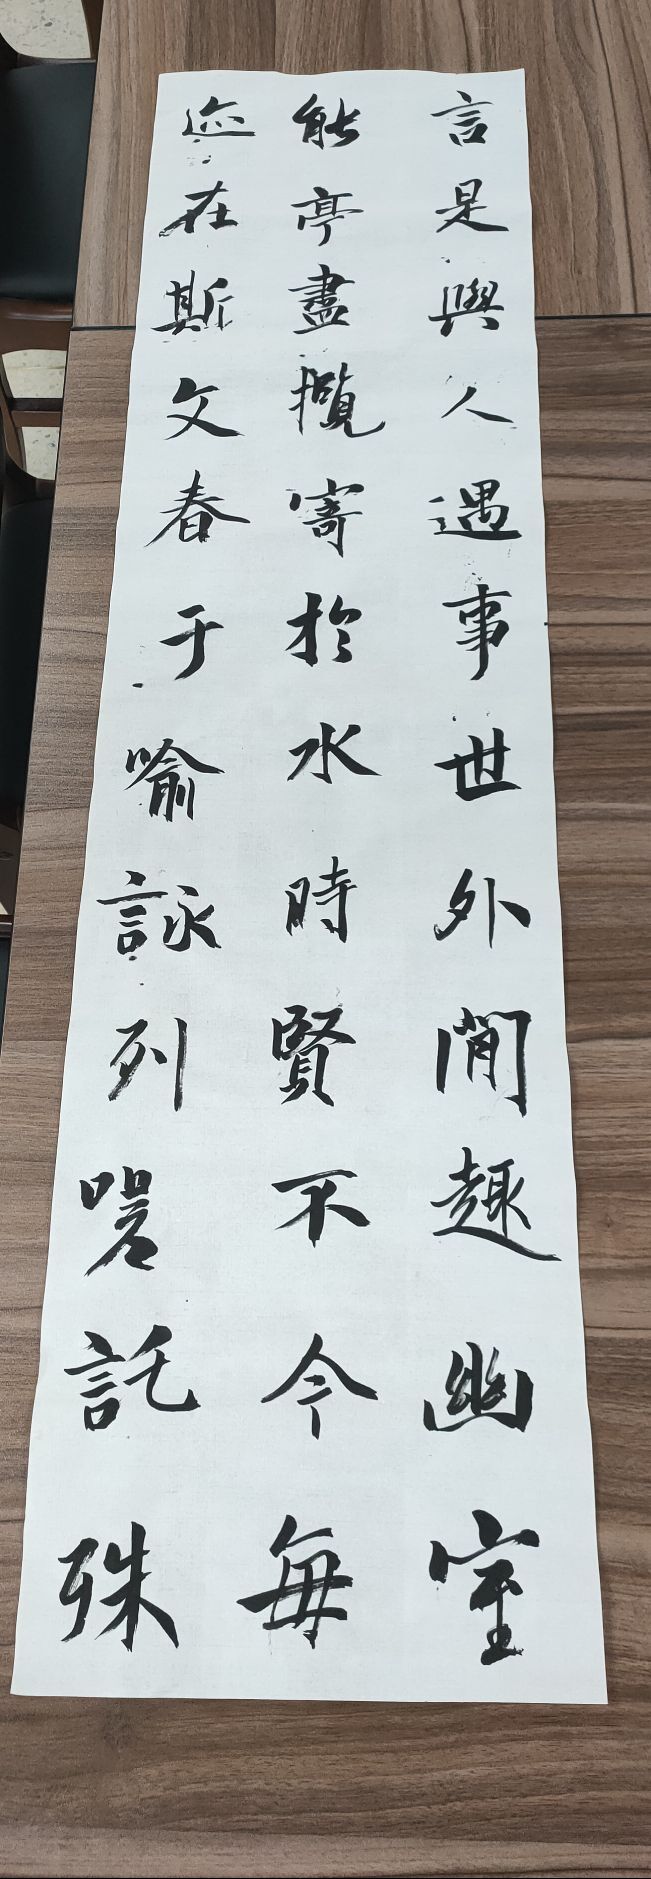 言是與人遇事世外閒趣幽室
能亭盡攬寄於水時賢不今每
迹在斯文春于喻詠列嗟託殊